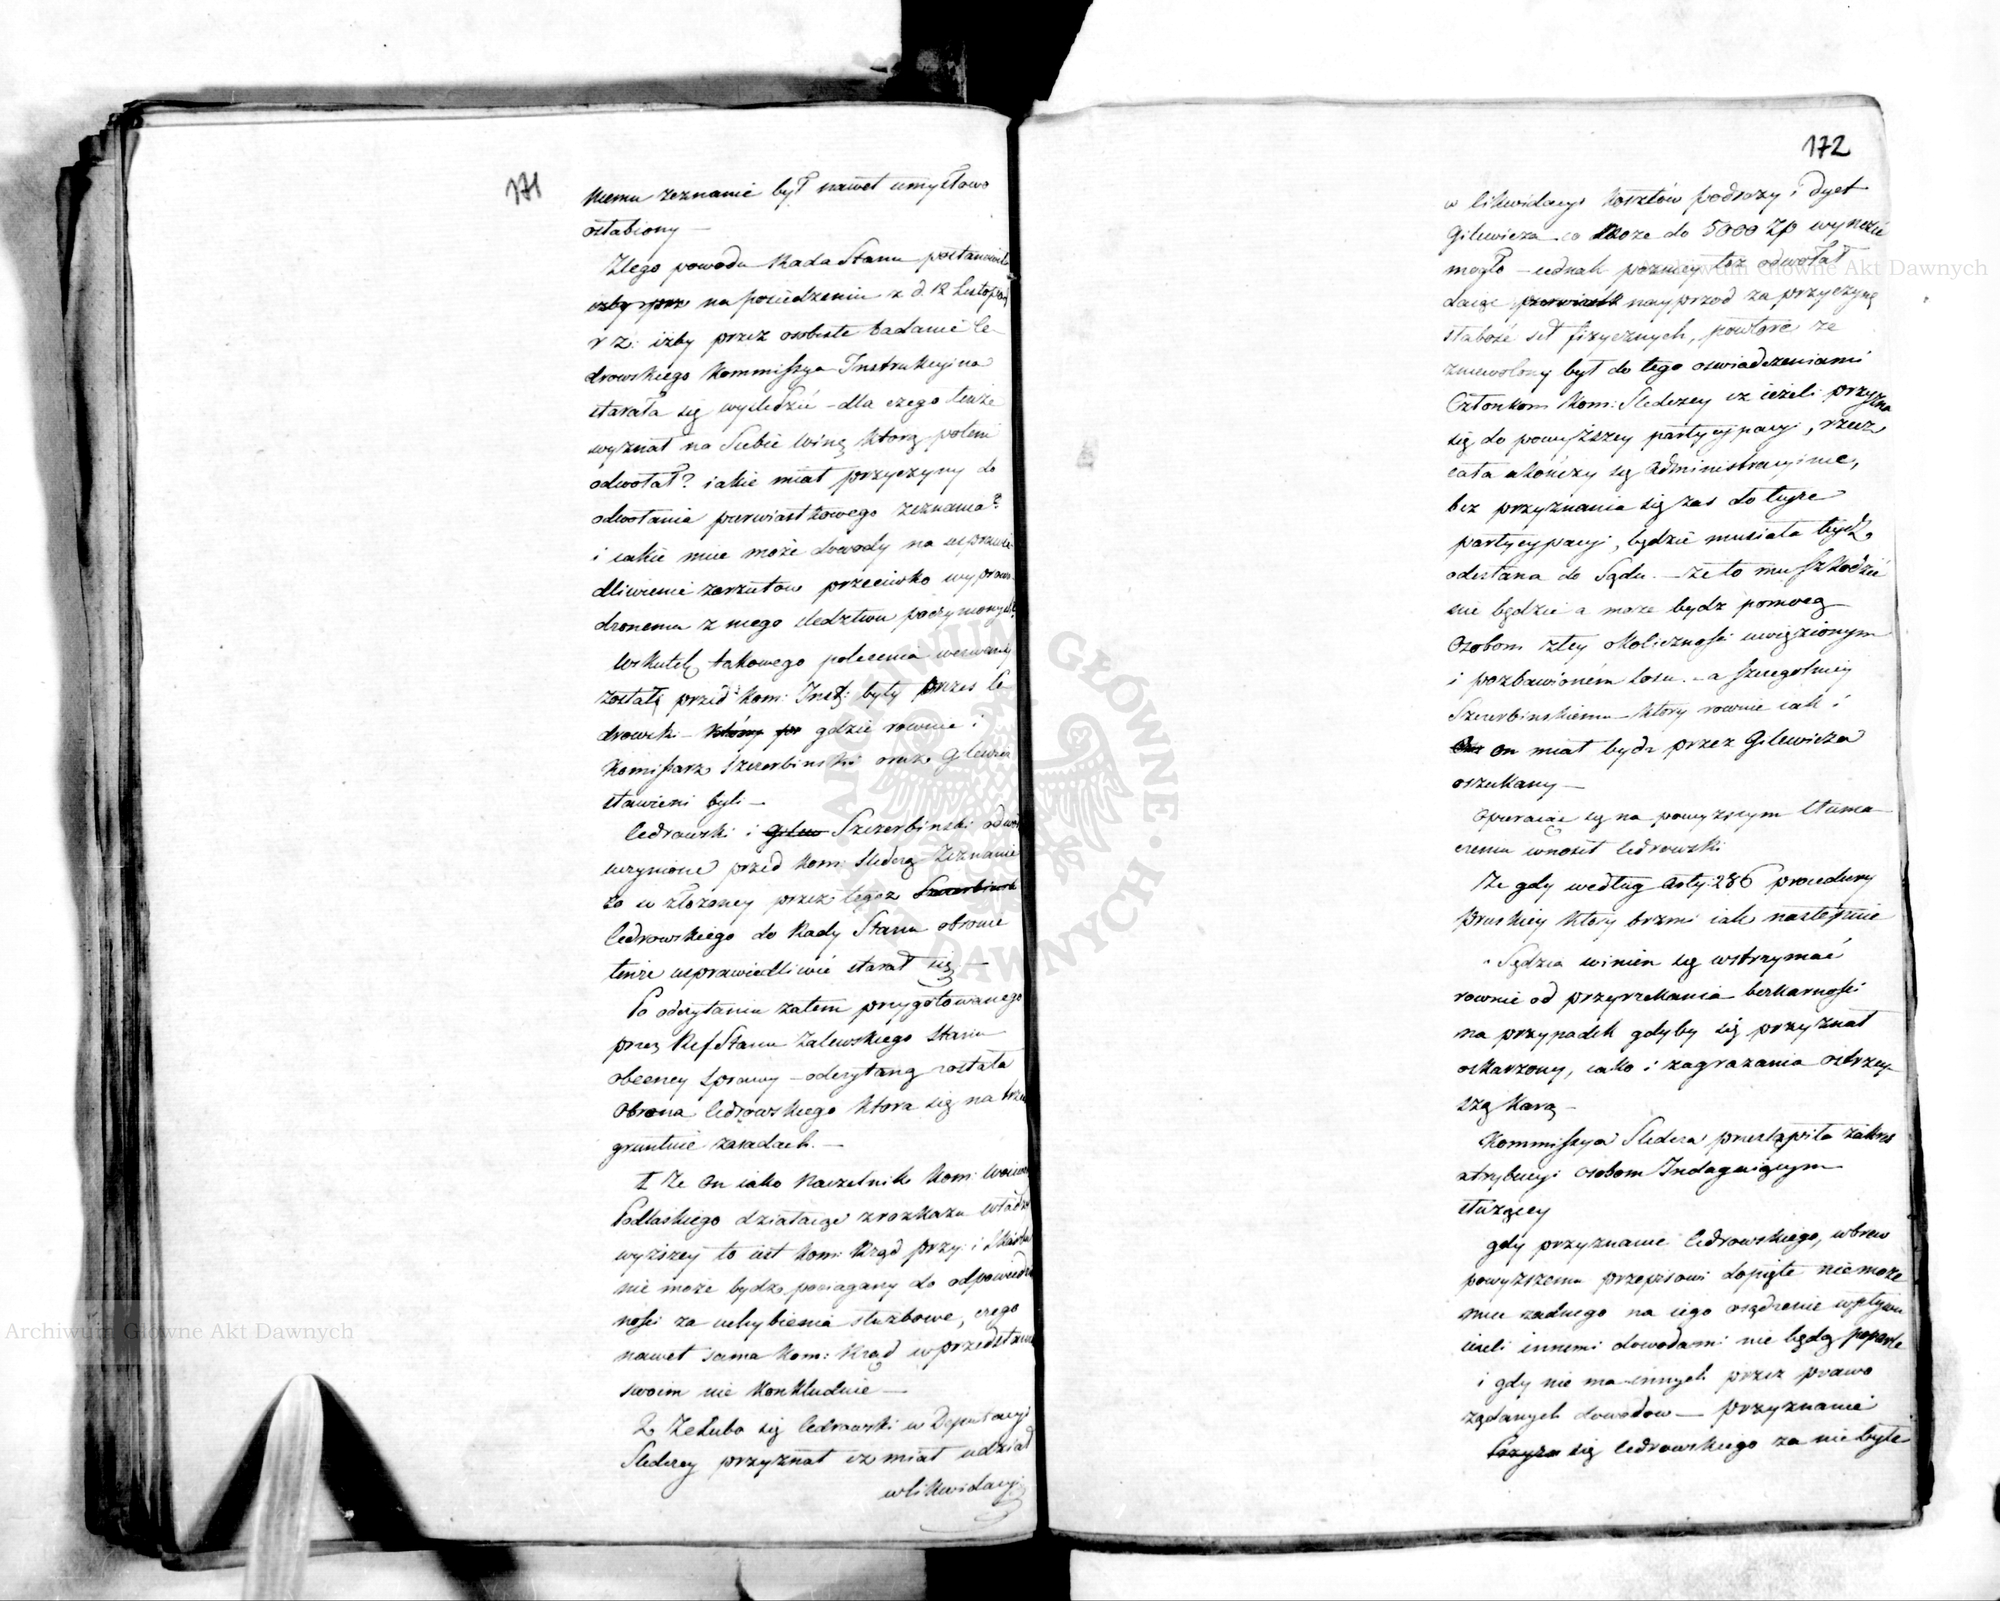 171
niemu zeznanie był nawet umysłowo
osłabiony —
Z tego powodu Rada Stanu postanowiła
na posiedzeniu z d. 12 Listopad
r z: iżby przez osobiste badanie Ce-
drowskiego Kommissya Instrukcyina
starała się wyśledzić – dla czego tenże
wyznał na Siebie winę którą potem
odwołał? iakie miał przyczyny do
odwołania pierwiastkowego zeznania?
i iakie mieć może dowody na usprawie-
dliwienie zarzutow przeciwko wyprowa-
dzonemu z niego sledztwu poczynionych?
Wskutek takowego polecenia wezwany
został przed Kom: Inst: były prezes Ce-
drowski – który gdzie rownie i
Komissarz Szczerbinski oraz Gilewicz
stawieni byli —
Cedrowski i Gilew Szczerbinski odwoł
uczynione przed Kom: Sledczą Zeznanie
co w złożoney przez tegoż Szczerbinsk
Cedrowskiego do Rady Stanu obronie
tenże usprawiedliwić starał się —
Po odczytaniu zatem przygotowanego
przez Ref Stanu Zalewskiego Stanu
obecney Sprawy – odczytaną została
Obrona Cedrowskiego ktora się na trzech
gruntuie zasadach. —
1 Że On iako Naczelnik Kom: Woiew
Podlaskiego działaiąc z rozkazu władzy
wyższey to iest Kom: Rząd przy: i Skarbu
nie może bydź pociągany do odpowiedzial
ności za uchybienia służbowe, czego
nawet sama Kom: Rząd w przedstawi
swoim nie Konkluduie —
2 Że lubo się Cedrowski w Deputacyi
Sledczey przyznał iż miał udział
w likwidacyi
172
w likwidacyi kosztów podroży i dyet
Gilewicza co może do 5000 Zp wynosić
mogło – iednak poźniey toż odwołał
daiąc pierwiastk nayprzod za przyczynę
słabość sił fizycznych, powtore że
zniewolony był do tego oswiadczeniami
Członkow Kom: Sledczey iż ieżeli przyzna
się do powyższey partycypacyi, rzecz
cała ukończy się administracyinie,
bez przyznania się zas do teyże
partycypacyi, będzie musiała bydź
odesłana do Sądu. – że to mu szkodzić
nie będzie a może bydz pomocą
Osobom złey okoliczności uwięzionym
i pozbawionem losu. – a szczegolniey
Szczerbinskiemu – ktory rownie iak i
on miał bydź przez Gilewicza
oszukany —
Opieraiąc się na powyższym tłuma-
czeniu wnosił Cedrowski
Że gdy według Arty: 286 procedury
Pruskiey ktory brzmi iak następuie
„Sędzia winien się wstrzymać
rownie od przyrzekania bezkarności
na przypadek gdyby się przyznał
oskarzony, iako i zagrażania ostrzey-
szą karą –
Kommissya Sledcza przestąpiła zakres
atrybucyi osobom Indaguiącym
służącey
gdy przyznanie Cedrowskiego, wbrew
powyższemu przepisowi dopięte nie może
mieć żadnego na iego osądzenie wpływu
ieżeli innemi dowodami nie będą poparte
i gdy nie ma innych przez prawo
żądanych dowodow — przyznanie
się Cedrowskiego za niebyłe
Archiwum Główne Akt Dawnych
Archiwum Główne Akt Dawnych
ARCHIWUM GŁÓWNE AKT DAWNYCH